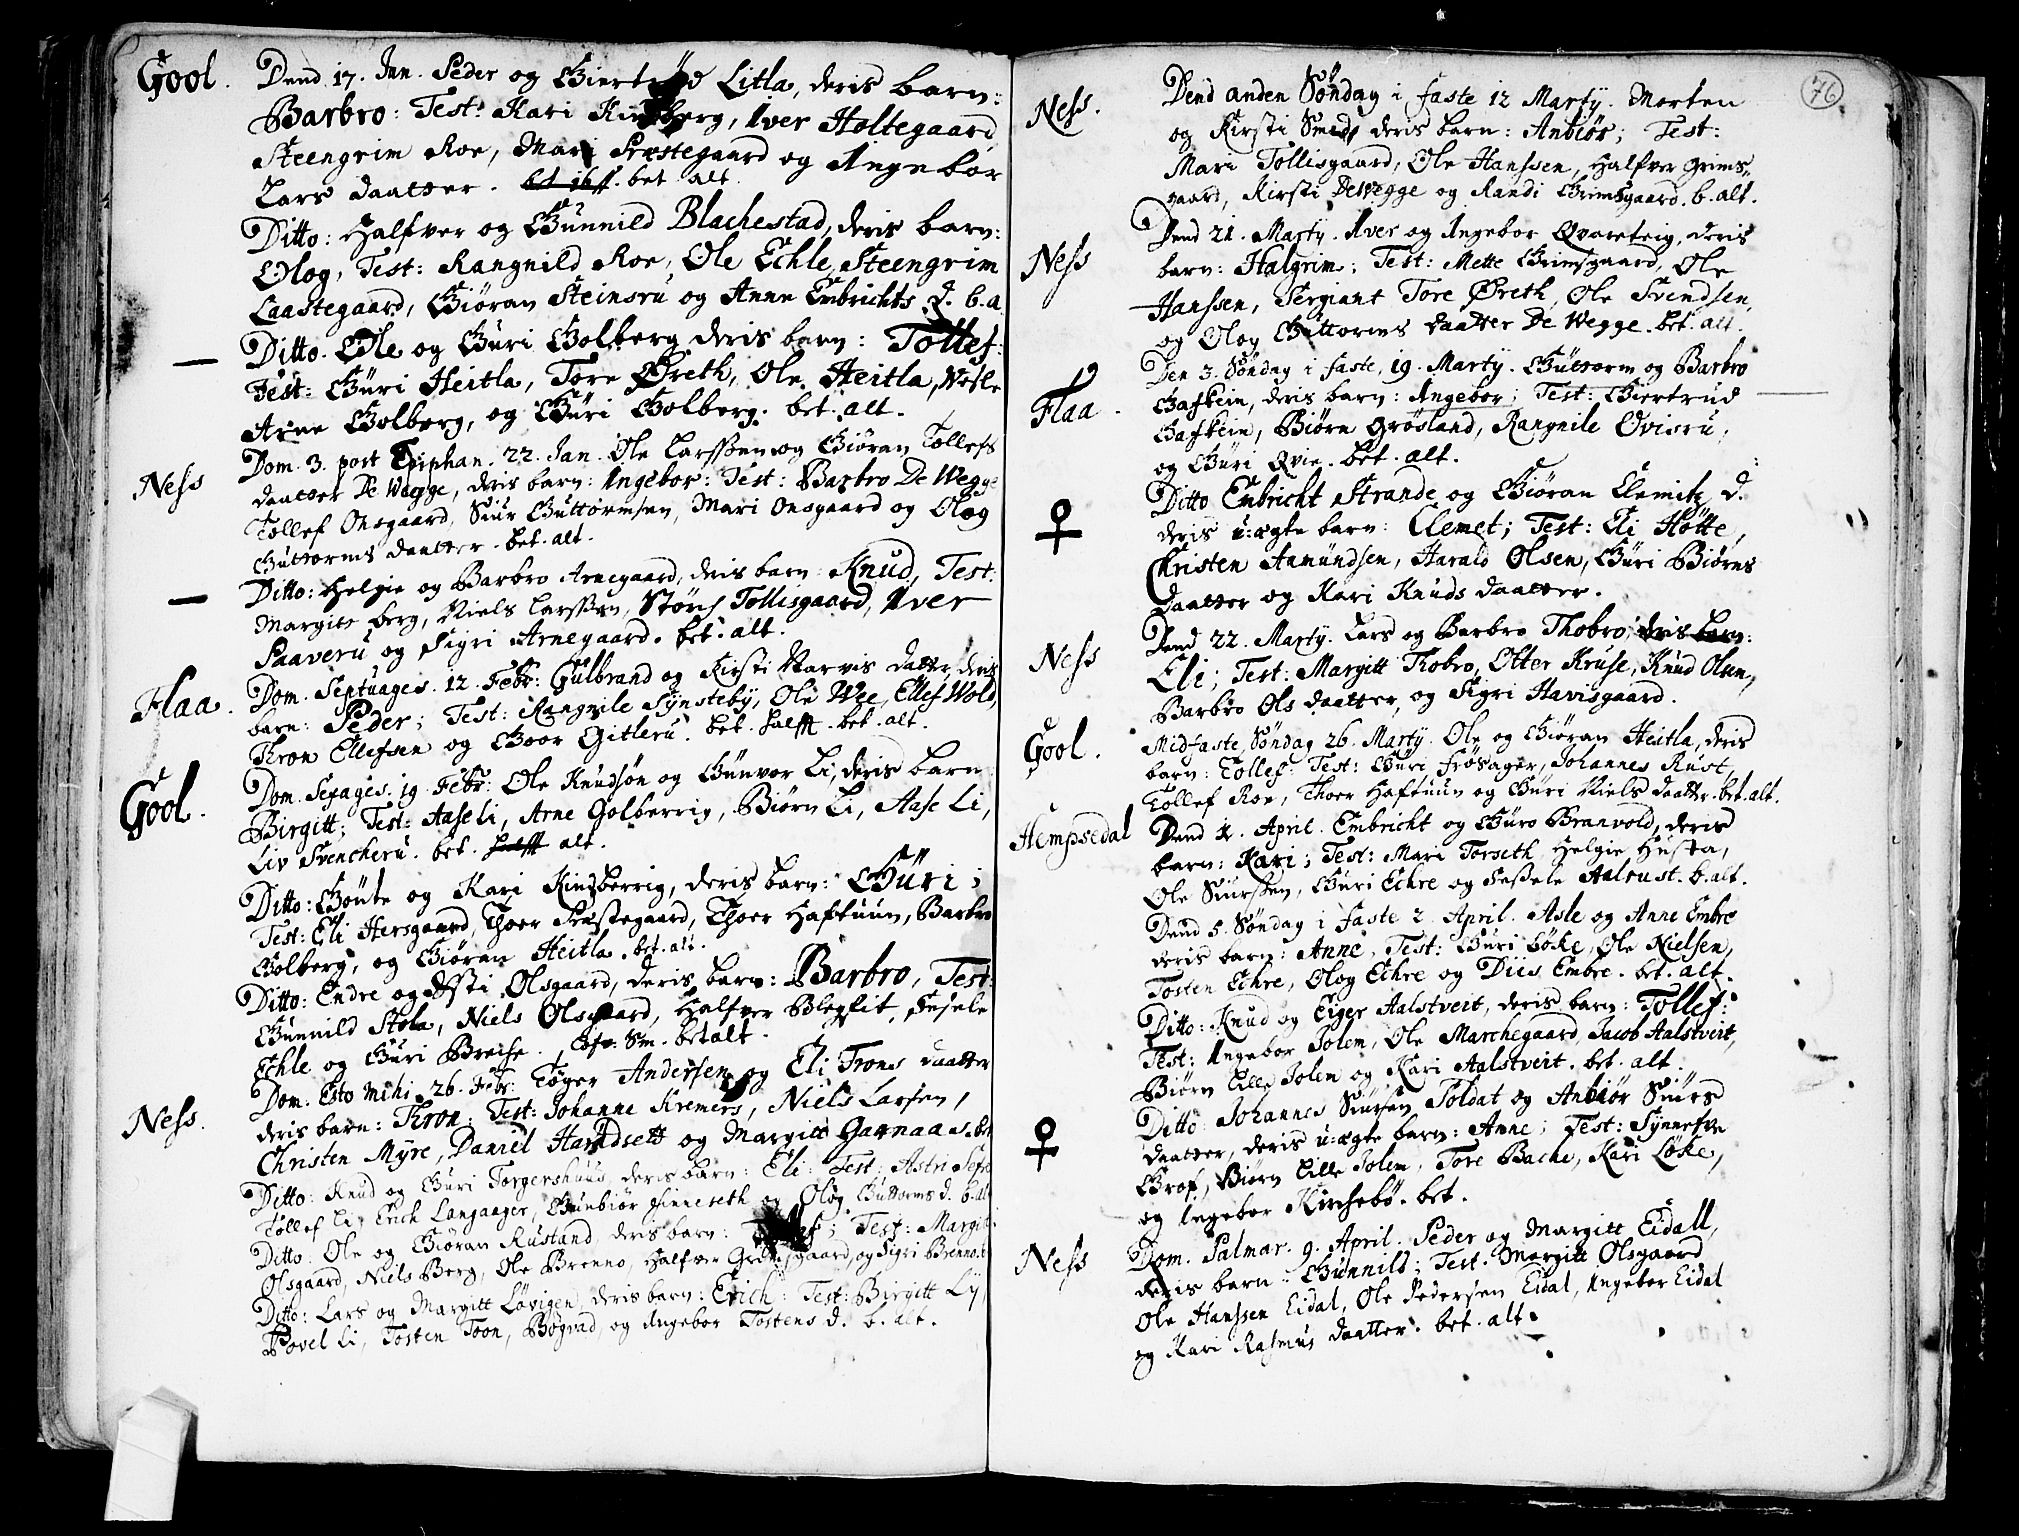 Gool. Dend 17. Jan. Peder og Giertrud Litla, deris barn:
Barbro: Test: Kari Kinsberg, Iver Holtegaard
Steengrim Roe, Mari Præstegaard og Ingebor
Lars daatter. bet. alt.
Ditto: Halfver og Gunnild Blachestad, deris barn:
Olog, Test: Rangnild Roe, Ole Echle, Steengrim
Laastegaard, Giøran Steinsru og Anne Embrichts d. b. a
— Ditto. Ole og Guri Golberg deris barn: Tollef:
Test: Guri Heitla, Tore Øreth, Ole Heitla, Nesle
Arne Golberg, og Guri Golberg. bet. alt.
Ness Dom. 3. post Epiphan. 22. Jan. Ole Larssen og Giøran Tollefs
daatter De Wegge, deris barn: Ingebor: Test: Barbro De Wegge
Tollef Onsgaard, Siur Guttormsen, Mari Onsgaard og Olog
Guttorms daatter. bet. alt.
— Ditto: Helgie og Barbro Arnegaard, deris barn: Knud, Test:
Margite berg, Niels Larssen, Størch Tollisgaard, Iver
Paaveru og Sigri Arnegaard. bet. alt.
Flaa. Dom. Septuages. 12. Febr: Gulbrand og Kirsti Narvis datter, deris
barn: Peder; Test: Rangnile Synsteby, Ole Wee, Ellef Wold,
Thron Ellefsen og Goor Gitleru. bet. halft. bet. alt.
Gool. Dom. Sexages. 19. Febr: Ole Knudsøn og Gunvor Li, deris barn
Birgitt; Test: Aase Li, Arne Golberrig, Biørn Li, Aase Li,
Liv Svencheru. bet. halft alt.
Ditto: Gøute og Kari Kinsberrig, deris barn: Guri;
Test: Eli Hersgaard, Thoer Præstegaard, Thoer Haftuun, Barbro
Golberg, og Giøran Heitla. bet. alt.
Ditto: Endre og Østi Olsgaard, deris barn: Barbro, Test:
Gunnild Stola, Niels Olsgaard, Halfver Bleqlit, Sesele
Echle og Guri Breise. Sm. betalt.
Ness. Dom. Esto Mihi. 26. Febr: Tøger Andersen og Eli Trons daatter
deris barn: Thron; Test: Johanne Kremers, Niels Larsen,
Christen Myre, Daniel Haraldsett og Margitt Garnaas. bet
Ditto: Knud og Guri Torgershuus, deris barn: Eli: Test: Astri Sefre
Tollef Li, Erich Langaager, Gunbiør Finneseth og Olog Guttorms d. b. alt
Ditto: Ole og Giøran Rustand, deris barn: Test: Margit
Olsgaard, Niels Berg, Ole Brenno, Halfver Grimsgaard, og Sigri Brenno.
Ditto: Lars og Margitt Løvigen, deris barn: Erich: Test: Birgitt Ly,
Povel Li, Tosten Toon, Bøgvad, og Ingebor Tostens d. b. alt.
76
Ness. Dend anden Søndag i faste 12 Marty. Morten
og Kirsti Smeds deris barn: Anbiør; Test:
Mari Tollisgaard, Ole Hanssen, Halfver Grims-
gaard, Kirsti DeWegge og Randi Grimsgaard. b. alt.
Ness Dend 21. Marty. Iver og Ingebor Qvareteig, deris
barn: Halgrim; Test: Mette Grimsgaard, Ole
Hanssen, Sergiant Tore Øreth, Ole Svendsen,
og Olog Guttorms daatter De Wegge. bet. alt.
Flaa. Den 3. Søndag i faste, 19. Marty. Guttorm og Barbro
Gaskein, deris barn: Ingebor; Test: Giertrud
Gaskein, Biørn Grøsland, Rangnile Øvisru,
og Guri Qvie. bet. alt.
♀ Ditto Embricht Strande og Giøran Clemitz d.
deris u:ægte barn: Clemet; Test: Eli Høtte,
Christen Aamundsen, Harald Olsen, Guri Biørns
daatter og Kari Knuds daatter.
Ness Dend 22. Marty. Lars og Barbro Thobro, deris barn:
Eli; Test: Margitt Thobro, Otter Kruse, Knud Olsen,
Barbro Ols daatter, og Sigri Havisgaard.
Gool. Midfaste Søndag 26. Marty. Ole og Giøran Heitla, deris
barn: Tollef: Test: Guri Frøsager, Johannes Rust,
Tollef Roe, Thoer Haftuun og Guri Niels daatter. bet. alt.
Hempsedal Dend 1. April. Embricht og Guro Branvold, deris
barn: Kari; Test: Mari Torseth, Helgie Husta,
Ole Siurssen, Guri Echre og Sessele Aalrust. b. alt.
Dend 5. Søndag i faste 2 April. Asle og Anne Embre
deris barn: Anne, Test: Guri Løke, Ole Nielsen,
Tosten Echre, Olog Echre og Diis Embre. bet. alt.
Ditto: Knud og Eiger Aalstveit, deris barn: Tollef:
Test: Ingebor Solem, Ole Marchegaard, Jacob Aalstveit,
Biørn Lille Solem og Kari Aalstveit. bet. alt.
♀ Ditto: Johannes Siursen Soldat og Anbiør Siurs
daatter, deris u:ægte barn: Anne; Test: Synnefve
Grøf, Biørn Lille Solem, Tore Bache, Kari Løke,
og Ingebor Kirchebø. bet.
Ness Dom. Palmar. 9. April. Peder og Margitt Eidall,
deris barn: Gunnild; Test. Margitt Olsgaard
Ole Hanssen Eidal, Ole Pedersen Eidal, Ingebor Eidal
og Kari Rasmus daatter. bet. alt.